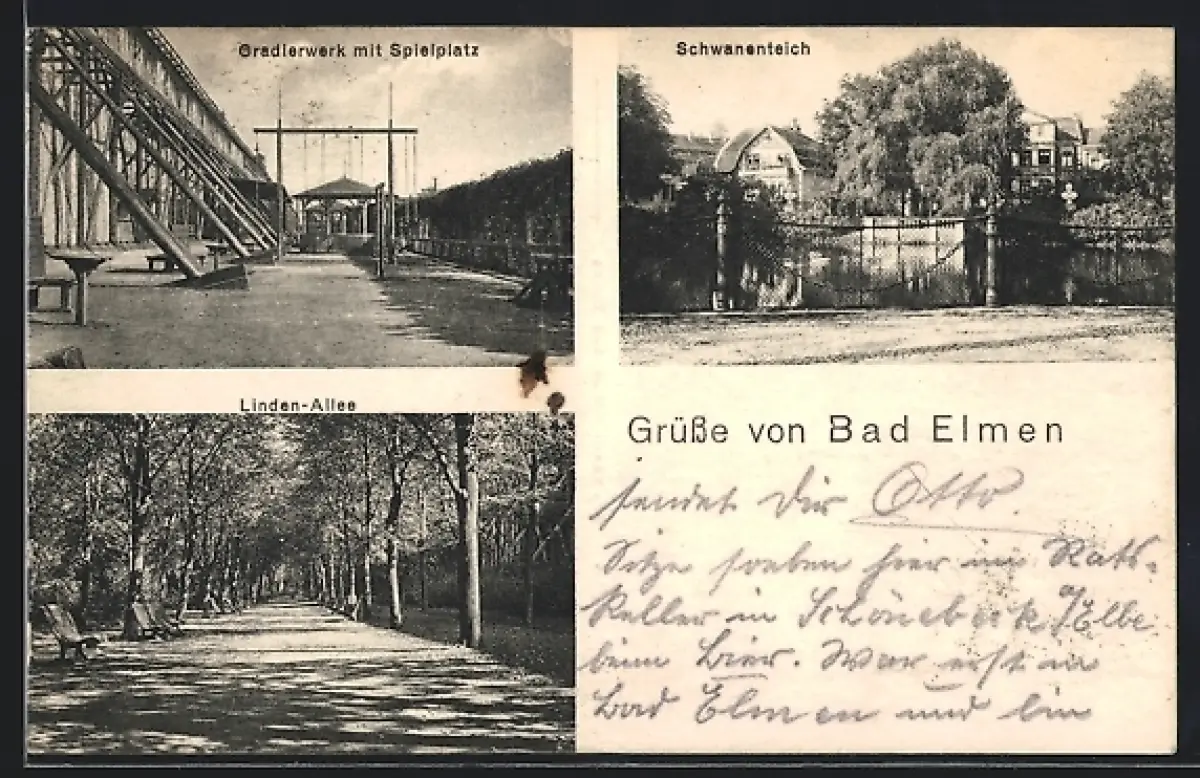 Gradierwerk mit Spielplatz
Schwanenteich
Linden-Allee
Grüße von Bad Elmen
sendet Dir Otto.
Sitze soeben hier im Rats-
keller in Schönebeck a/Elbe
beim Bier. War erst in
Bad Elmen und bin